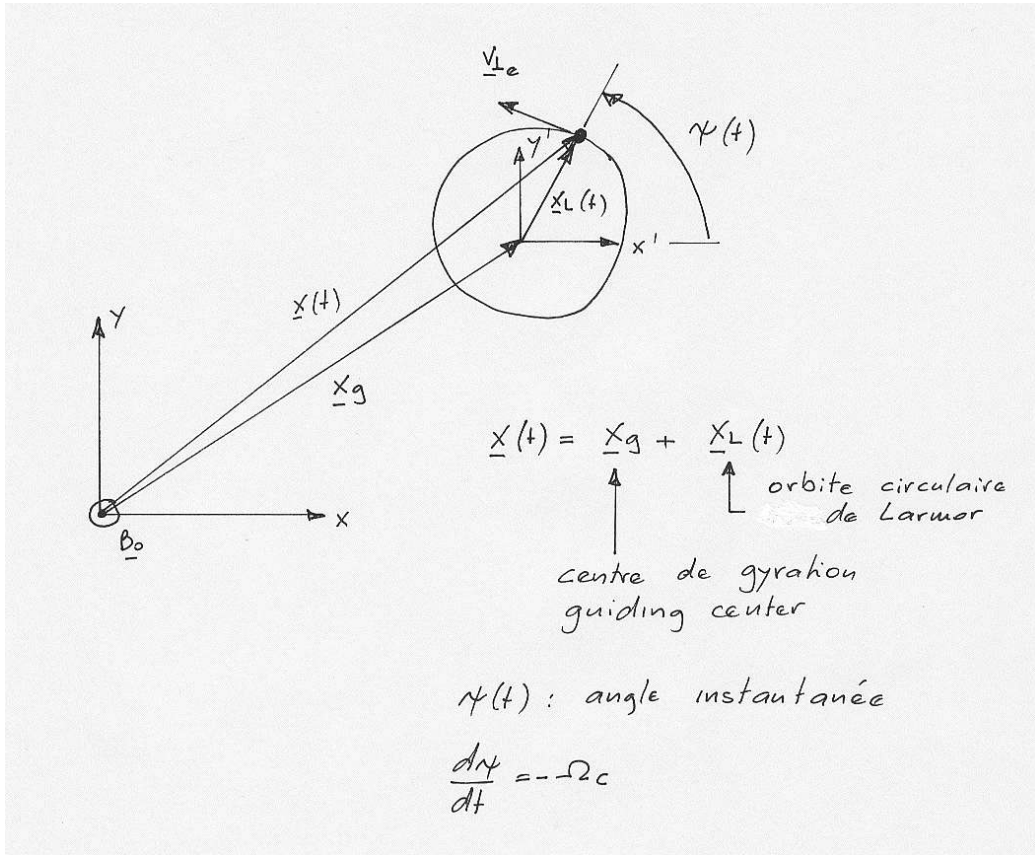 v⊥e
ψ(t)
y'
x_L(t)
x'
x(t)
y
x_g
x
B₀
x(t) = x_g + x_L(t)
orbite circulaire
de Larmor
centre de gyration
guiding center
ψ(t) : angle instantanée
dψ/dt = -Ωc